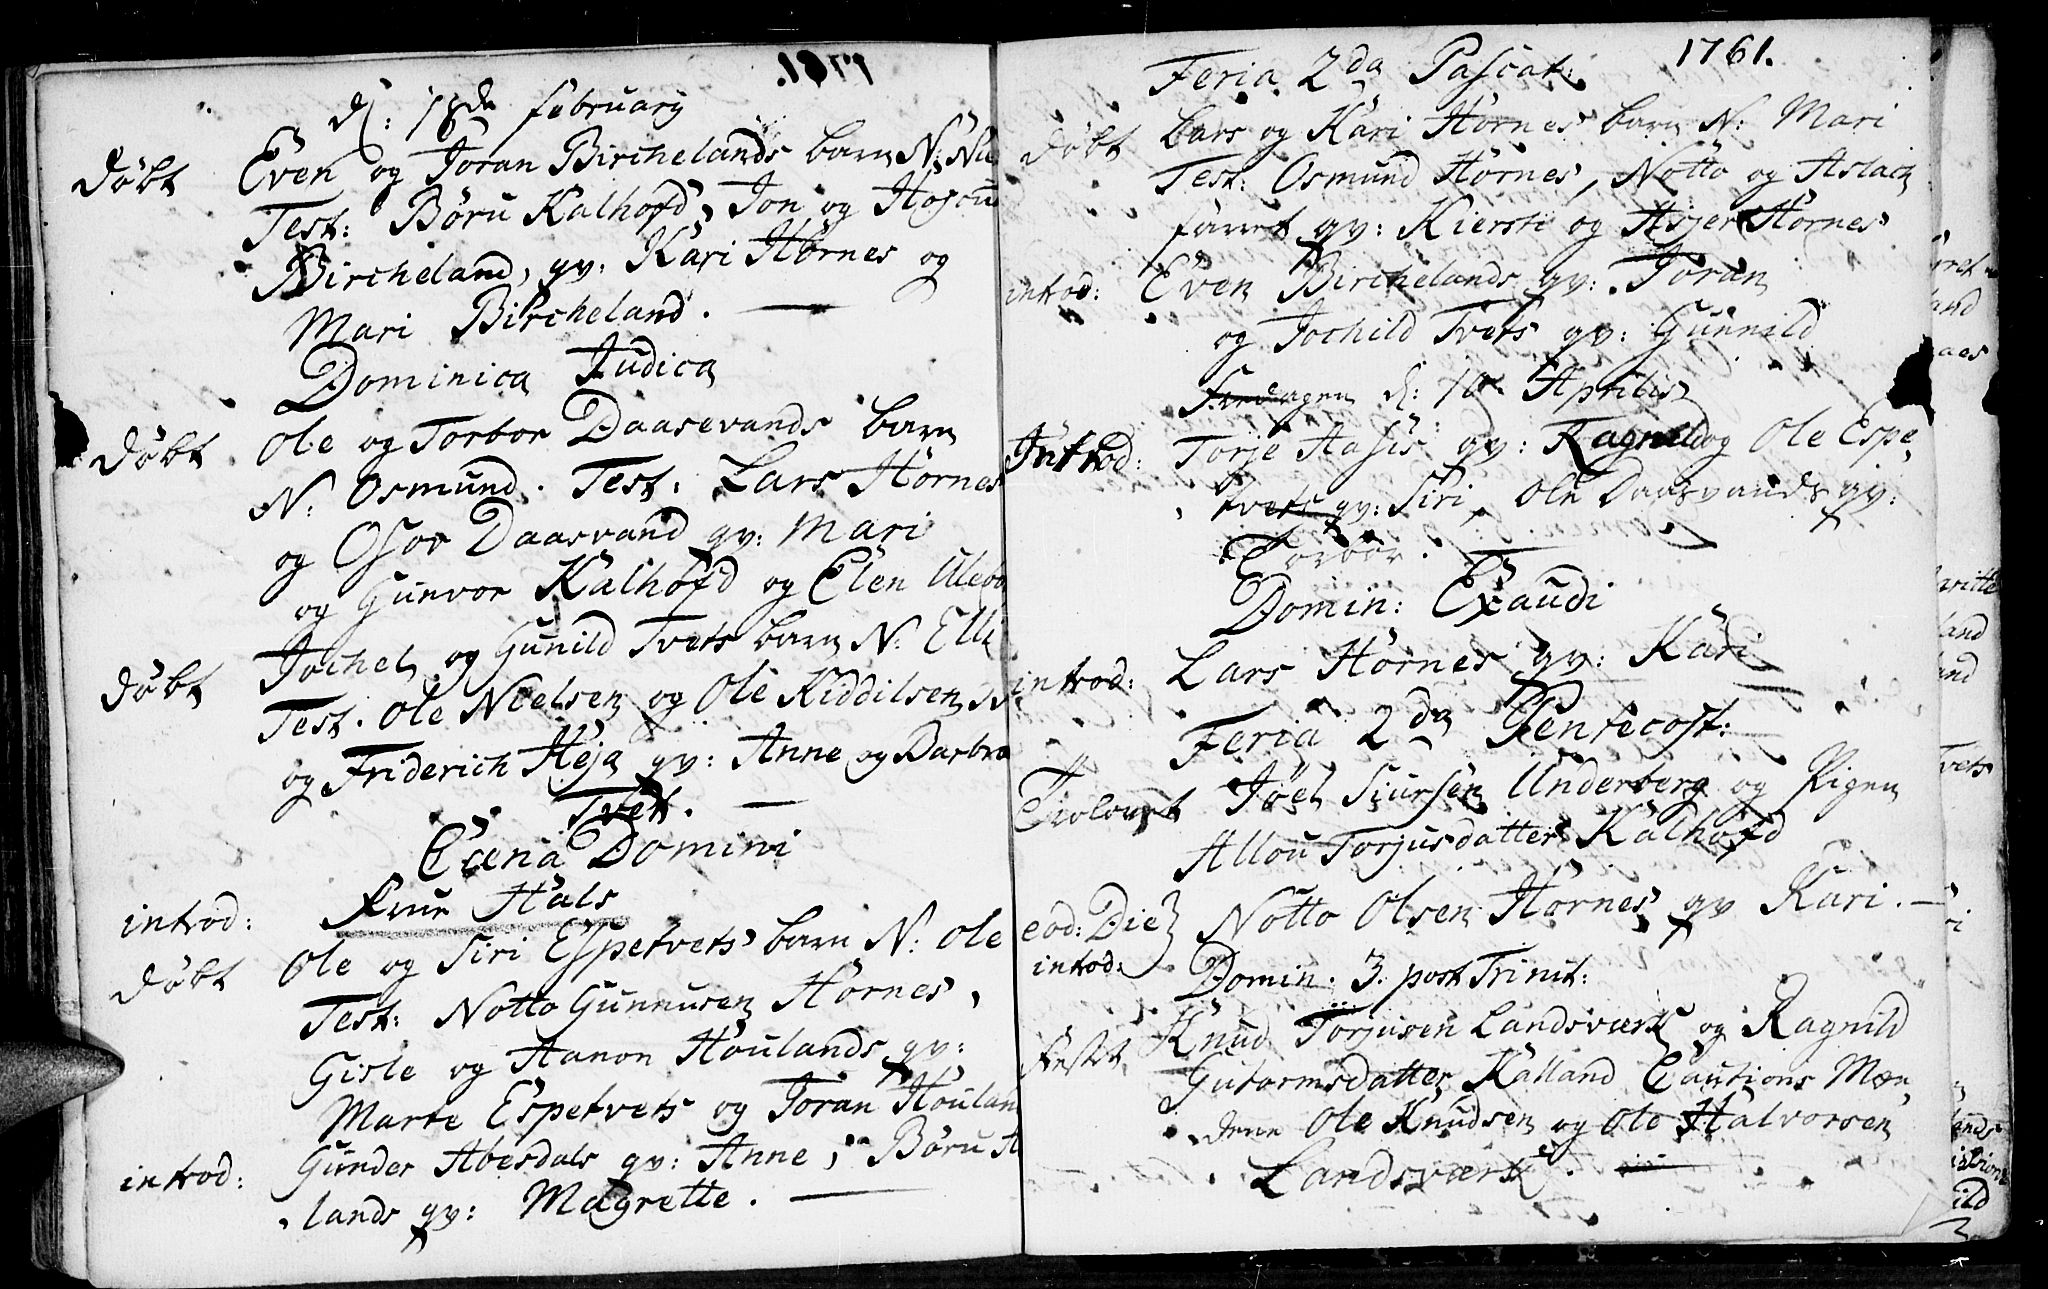 1761.
d: 18de februarij
Døbt Even og Joran Birchelands barn N: Nie
Test: Børu Kalhofd, Jon og
Bircheland, qv: Kari Hornes og
Mari Bircheland.
Dominica Judica
Døbt Ole og Torbor Daasevands barn
N: Osmund. Test: Lars Hornes
og Osor Daasvand qv: Mari
og Gunvor Kalhofd og Elen Ulebo
Døbt Jochel og Gunild Tvets barn N: Elli
Test. Ole Nielsen og Ole Kiddilsen
og Friderich Heja qv: Anne og Barbra
Tvett.
Cœna Domini
introd: Frue Hals
Døbt Ole og Siri Espetvets barn N: Ole
Test: Notto Gunnusen Hornes,
Gisle og Aanon Houlands qv:
Marte Espetvets og Joran Houlan
introd: Gunder Abesdals qv: Anne, Børu
lands qv: Magrette.
1761.
Feria 2da Pascat:
Døbt Lars og Kari Hornes barn N: Mari
Test: Osmund Hornes, Notto og Aslach
qv: Kiersti og Asjer Hornes
introd: Even Birchelands qv: Joran
og Jochild Tvets qv: Gunnild
d: 10 Aprilis
Introd: Torje Aasis qv: Ragnild og Ole Espe,
tvets qv: Siri, Ole Daasvands qv:
Torbor.
Domin: Exaudi
introd: Lars Hornes qv: Kari
Feria 2da Pentecost:
Trolovet Joel Siursen Underberg og Pigen
Allou Torjusdatter Kalhofd
eod: Die Notto Olsen Hornes qv Kari.
introd:
Domin. 3. post Trinit:
Festet, Knud Torjusen Landsværk og Ragnild
Gutormsdatter Kalland Cautions Mæn,
dene Ole Knudsen og Ole Halvorsen
Landsværk.